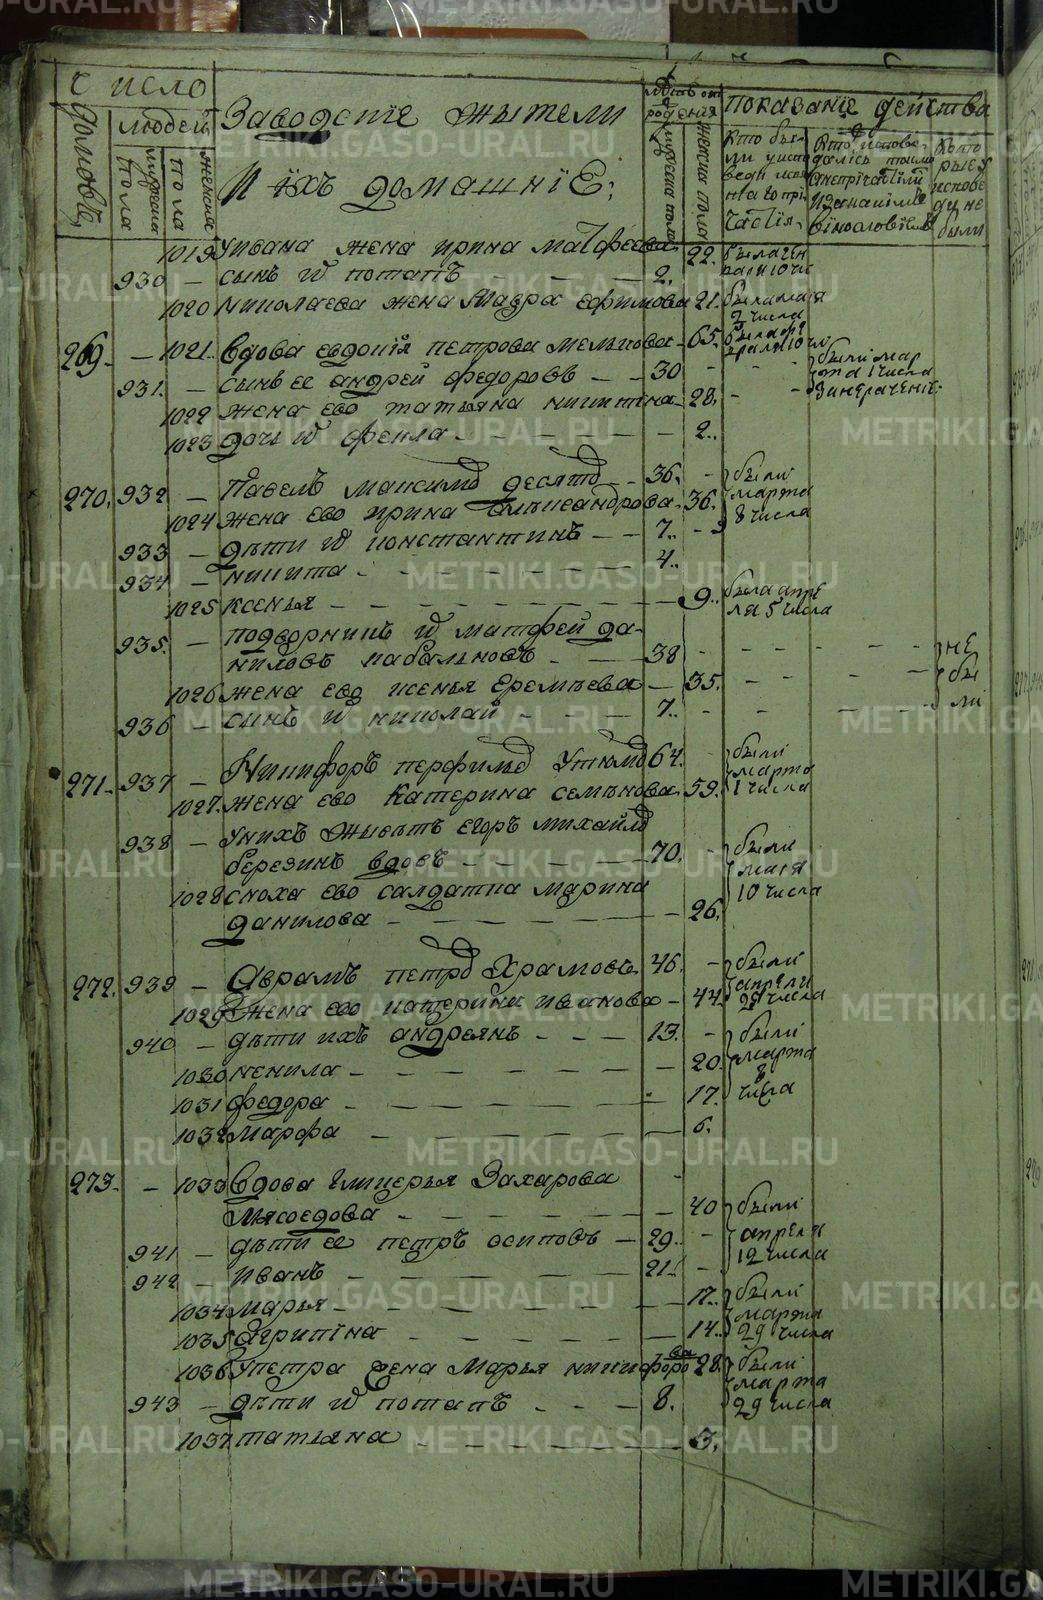 Число
домовъ
людей
мужеска пола
женска пола
Заводскіе жытели
и ихъ домашніе
лѣтъ от рождения
мужеска пола
женска пола
показаніе действа
Кто были у исповеди и святаго причастія
Кто исповедались токмо а непричастилис и за какимъ винословіемъ
Которые у исповеди не были
1019 У ивана жена ирина матфеева 22.
930 — сынъ и потапъ — 2.
1020 николаева жена Мавра ефимова 21. была мая
2 числа
269 — 1021 вдова евдокія петрова мелкова 65. была
931. — сынъ ее андрей федоровъ — 30 были мар
та 1 числа
1022 жена ево татьяна никитина 28.
1023 дочь и фекла 2.
270. 932 — Павелъ максимо десято 36. были
марта
8 числа
1024 жена ево ирина александрова 36.
933 — дѣти и константинъ — 7.
934 — никита 4.
1025 ксенья 9. была апре
ля 5 числа
935. — подворникъ и матфей да-
ниловъ кабаковъ — 38 не
бы
ли
1026 жена ево ксенья еремѣева — 35.
936 — сынъ и николай 7.
271 937 — Никифоръ перфильо 64. были
марта
1 числа
1027. жена ево Катерина семенова 59.
938 — У нихъ жыветъ егоръ михайло
березинъ вдовъ 70. были
мая
10 числа
1028 сноха ево салдатка марина
данилова — 26.
272. 939 — Аврамъ петро Храмовъ 46. были
апреля
29 числа
1029 жена ево катерина иванова — 44.
940 — дѣти ихъ андреянъ 13. были
марта
8
числа
1030 ненила 20.
1031 федора 17.
1032 марфа 6.
273. — 1033 вдова гликерья Захарова
Мясоедова 40 были
апреля
12 числа
941 — дѣти ее петръ осиповъ — 29.
942 — иванъ 21.
1034 марья 17. были
марта
29 числа
1035 агрипина 14.
1036 У петра жена Марья никифорова 28. были
марта
29 числа
943 — дѣти и потапъ 8.
1037 татьяна 3.
METRIKI.GASO-URAL.RU